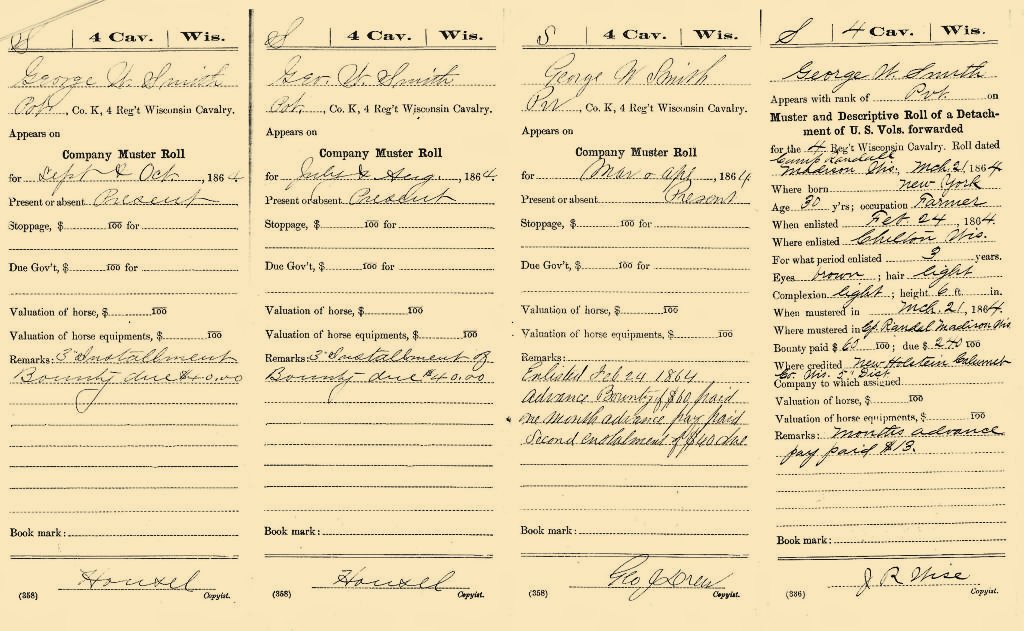 S | 4 Cav. | Wis.
George W. Smith
Pvt., Co. K, 4 Reg't Wisconsin Cavalry.
Appears on
Company Muster Roll
for Sept & Oct, 1864.
Present or absent Present
Stoppage, $ 100 for
Due Gov't, $ 100 for
Valuation of horse, $ 100
Valuation of horse equipments, $ 100
Remarks: 3" Installment
Bounty due $40.00
Book mark:
Housel
(358) Copyist.
S | 4 Cav. | Wis.
Geo. W. Smith
Pvt., Co. K, 4 Reg't Wisconsin Cavalry.
Appears on
Company Muster Roll
for July & Aug., 1864.
Present or absent Present
Stoppage, $ 100 for
Due Gov't, $ 100 for
Valuation of horse, $ 100
Valuation of horse equipments, $ 100
Remarks: 3" Installment of
Bounty due $40.00
Book mark:
Housel
(358) Copyist.
S | 4 Cav. | Wis.
George W Smith
Prv, Co. K, 4 Reg't Wisconsin Cavalry.
Appears on
Company Muster Roll
for Mar & Apl, 1864
Present or absent Present
Stoppage, $ 100 for
Due Gov't, $ 100 for
Valuation of horse, $ 100
Valuation of horse equipments, $ 100
Remarks:
Enlisted Feb 24 1864
Advance Bounty of $60 paid
one month advance pay paid
Second enstalment of $40 due
Book mark:
Geo J Drew
(358) Copyist.
S | 4 Cav. | Wis.
George W. Smith
Appears with rank of Pvt. on
Muster and Descriptive Roll of a Detach-
ment of U. S. Vols. forwarded
for the 4 Reg't Wisconsin Cavalry. Roll dated
Camp Randall
Madison Wis., Mch. 21, 1864
Where born New York
Age 30 y'rs; occupation Farmer
When enlisted Feb. 24, 1864.
Where enlisted Chilton Wis.
For what period enlisted 3 years.
Eyes brown; hair light
Complexion light; height 6 ft. in.
When mustered in Mch. 21, 1864.
Where mustered in Cp. Randel Madison Wis
Bounty paid $ 60 100; due $ 240 100
Where credited New Holstein Calumet
Co. Wis. 5" Dist
Company to which assigned
Valuation of horse, $ 100
Valuation of horse equipments, $ 100
Remarks: Months advance
pay paid $13.
Book mark:
J R Wise
(386) Copyist.